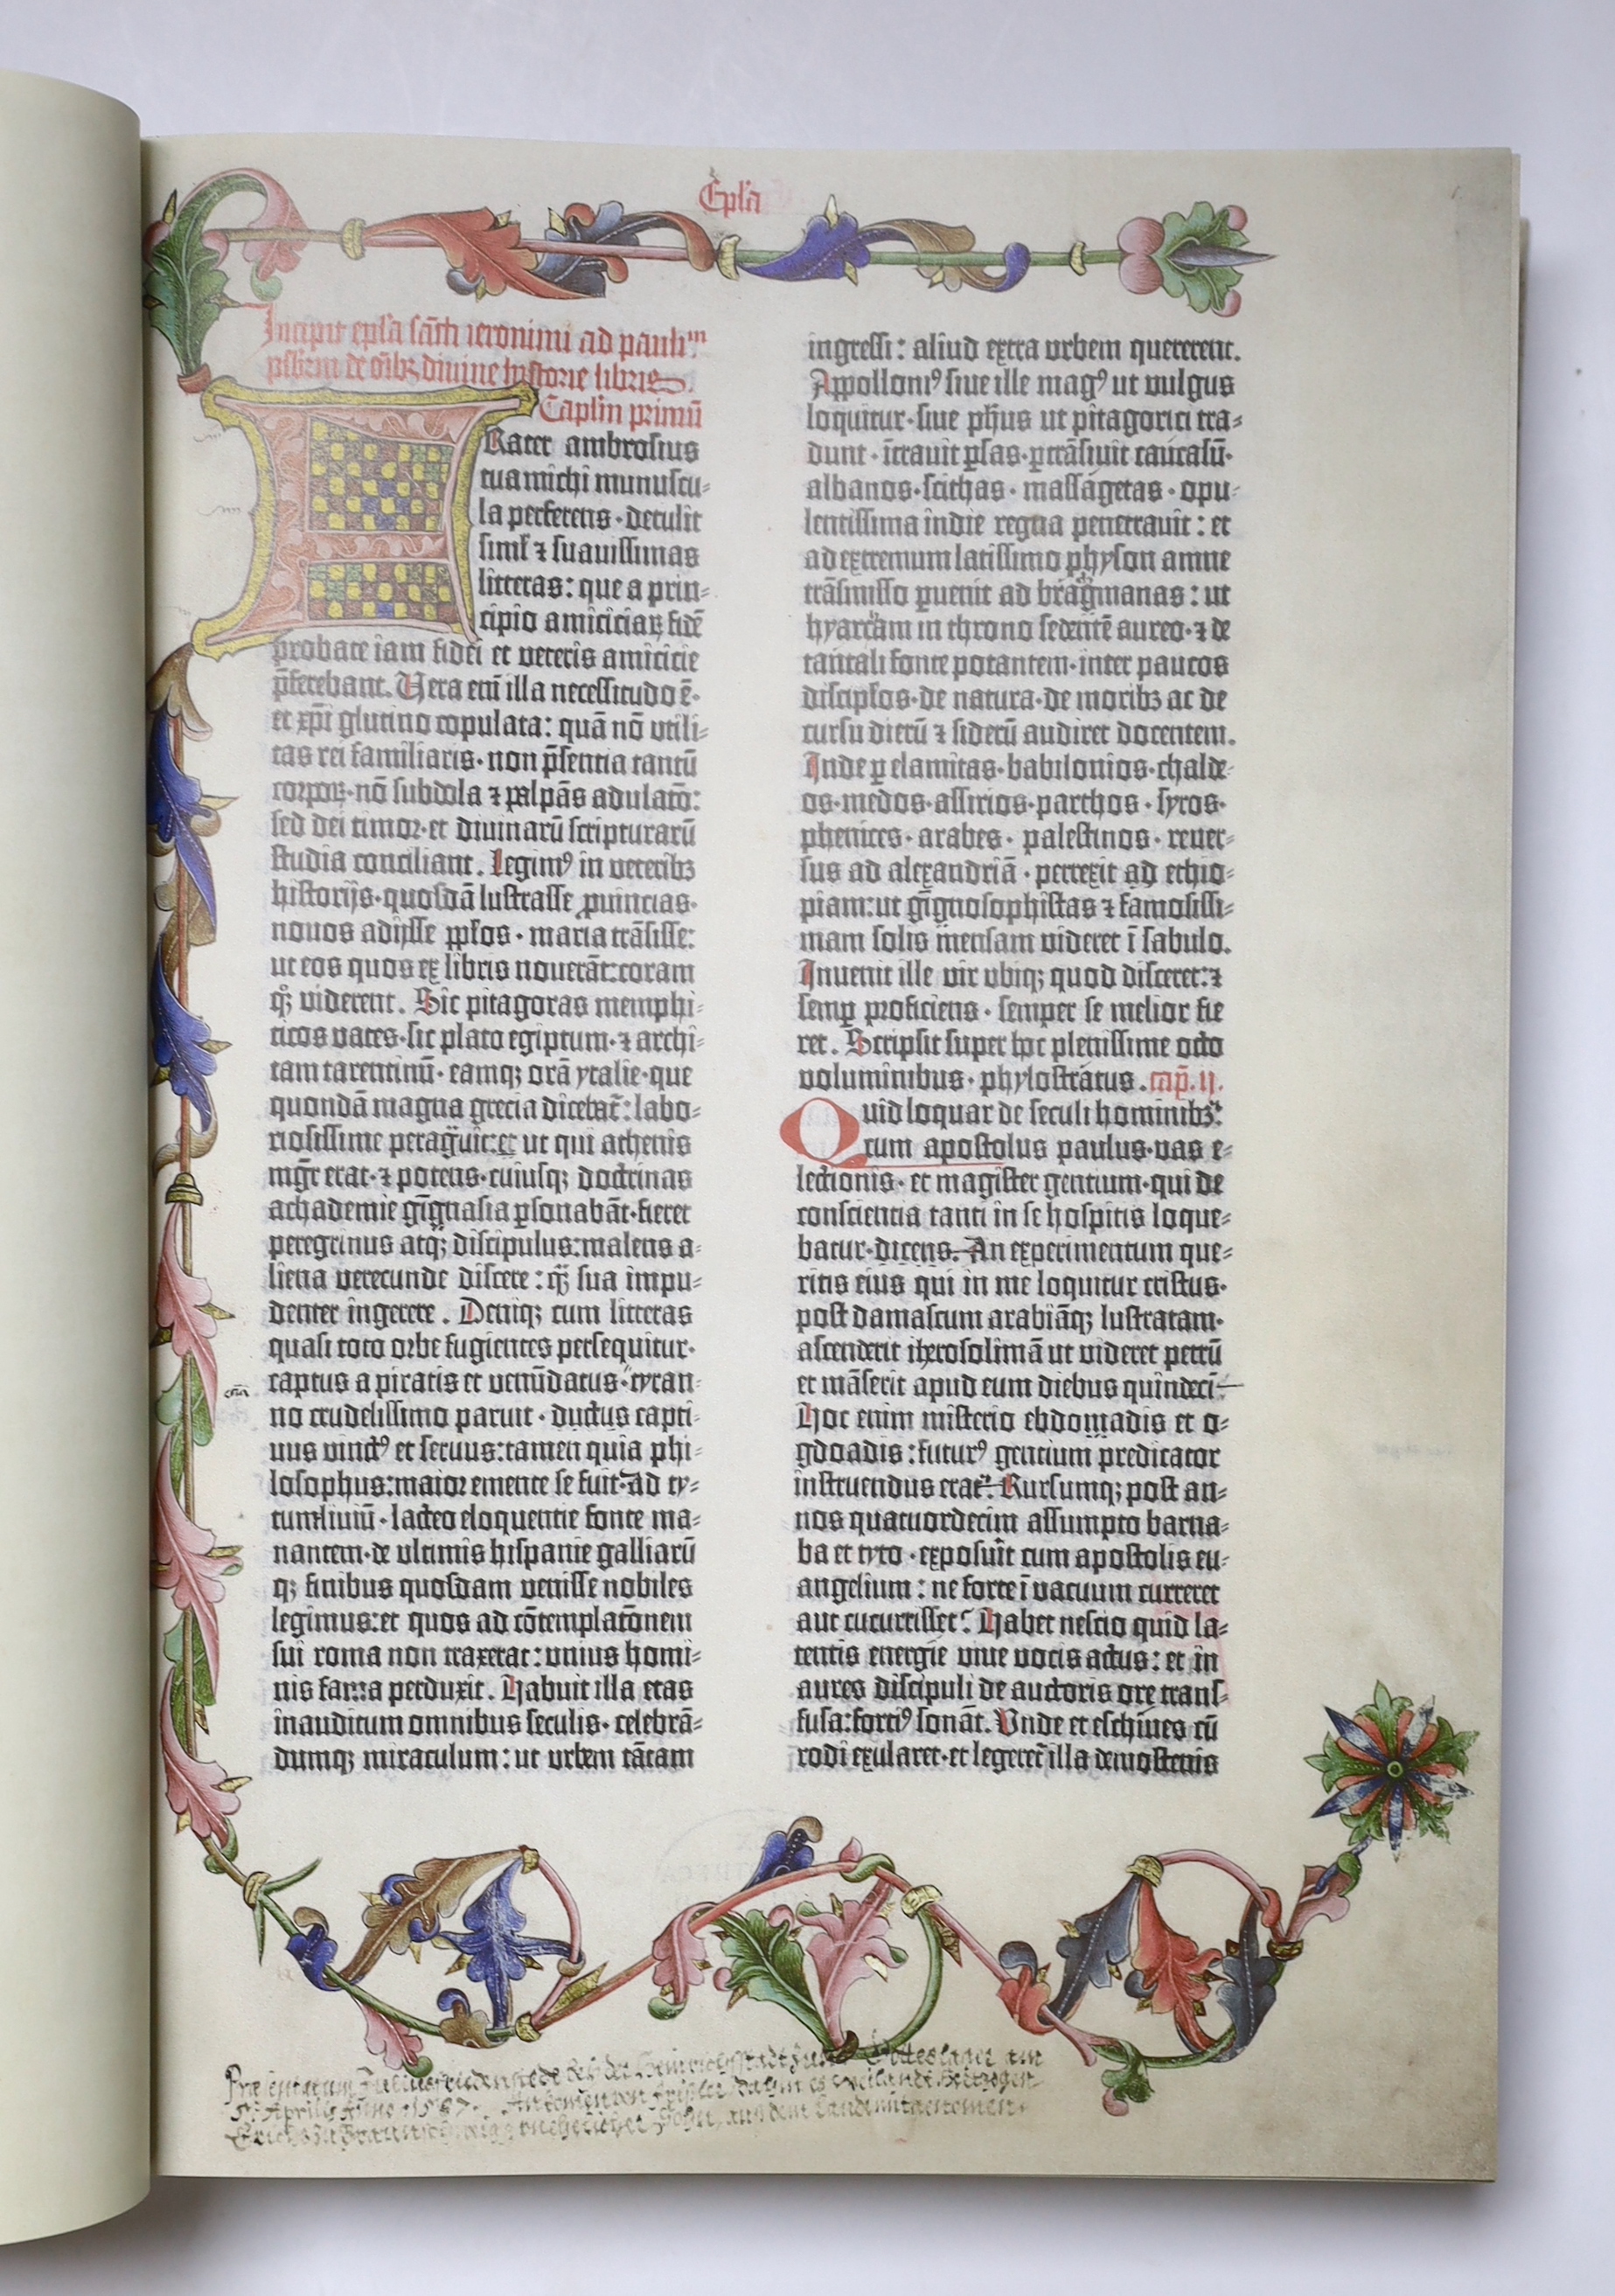 Epl̄a
Incipit epl̄a sāc̄ti ieronimi ad paulīᵐ
pſbr̄m de oīb₉ diuine hyſtorie libris
Capl̄m primū
Frater ambroſius
tua michi munuſcu-
la perferens · detulit
ſiml̄ ⁊ ſuauiſſimas
litteras: que a prin-
cipio amiciciaꝝ fidē
probate iam fidei et veteris amicicie
p̄ferebant. Vera em̄ illa neceſſitudo ē·
et xp̄i glutino copulata: quā nō vtili-
tas rei familiaris· non p̄ſentia tantū
corpoꝝ· nō ſubdola ⁊ palpās adulatō:
ſed dei timor· et diuinarū ſcripturarū
ſtudia conciliant. Legim⁹ in veteribꝫ
hiſtorijs· quoſdā luſtraſſe ꝓuincias·
nouos adijſſe ppl̄os· maria trāſiſſe:
ut eos quos ex libris nouerāt: coram
qꝫ viderent. Sic pitagoras memphi-
ticos vates· ſic plato egiptum· ⁊ archi-
tam tarentinū· eamqꝫ orā ytalie· que
quondā magna grecia dicebat̄: labo-
rioſiſſime peragͥuit: et ut qui athenis
mḡr erat· ⁊ potens· cuiuſqꝫ doctrinas
achademie gīgnaſia ꝑſonabāt· fieret
peregrinus atqꝫ diſcipulus: malens a-
liena verecunde diſcere: qͣꝫ ſua impu-
denter ingerere. Deniqꝫ cum litteras
quaſi toto orbe fugientes perſequitur·
captus a piratis et venūdatus· tyran-
no crudeliſſimo paruit· ductus capti-
uus vinct⁹ et ſeruus: tamen quia phi-
loſophus: maior emente ſe fuit· ad ty-
tumliuiū· lacteo eloquentie fonte ma-
nantem· de vltimis hiſpanie galliarū
qꝫ finibus quoſdam veniſſe nobiles
legimus: et quos ad cōtemplatōnem
ſui roma non traxerat: vnius homi-
nis fama perduxit. Habuit illa etas
inauditum omnibus ſeculis· celebrā-
dumqꝫ miraculum: ut vrbem tātam
ingreſſi: aliud extra vrbem quererent.
Appolloni⁹ ſiue ille mag⁹ ut vulgus
loquitur· ſiue ph̄us ut pitagorici tra-
dunt· ītrauit ꝑſas· ꝑtrāſiuit caucaſū·
albanos· ſcithas· maſſagetas· opu-
lentiſſima indie regna penetrauit: et
ad extremum latiſſimo phyſon amne
trāſmiſſo ꝑuenit ad bragmanas: ut
hyarcam in throno ſedentē aureo· ⁊ de
tantali fonte potantem· inter paucos
diſcipl̄os· de natura· de moribꝫ ac de
curſu dierū ⁊ ſiderū audiret docentem.
Inde ꝑ elamitas· babilonios· chalde-
os· medos· aſſirios· parthos· ſyros·
phenices· arabes· paleſtinos· reuer-
ſus ad alexandriā· perrexit ad ethio-
piam: ut gīgnoſophiſtas ⁊ famoſiſſi-
mam ſolis menſam videret ī ſabulo.
Inuenit ille vir vbiqꝫ quod diſceret: ⁊
ſemꝑ proficiens· ſemper ſe melior fie
ret. Scripſit ſuper hoc pleniſſime octo
voluminibus· phyloſtratus. cap̄. II.
Quid loquar de ſeculi hominibꝫ:
cum apoſtolus paulus· vas e-
lectionis· et magiſter gentium· qui de
conſcientia tanti in ſe hoſpitis loque-
batur· dicens. An experimentum que-
ritis eius qui in me loquitur criſtus·
poſt damaſcum arabiāqꝫ luſtratam·
aſcenderit iheroſolimā ut videret petrū
et māſerit apud eum diebus quindeci
Hoc enim miſterio ebdomadis et o-
gdoadis: futur⁹ gentium predicator
inſtruendus erat. Rurſumqꝫ poſt an-
nos quatuordecim aſſumpto barna-
ba et tyto· expoſuit cum apoſtolis eu-
angelium: ne forte ī vacuum curreret
aut cucurriſſet. Habet neſcio quid la-
tentis energie viue vocis actus: et in
aures diſcipuli de auctoris ore tranſ-
fuſa: forti⁹ ſonāt. Vnde et eſchines cū
rodi exularet· et legeret̄ illa demoſtenis
Præſentatum Julius Friedenſtede bey der Heinrichſtadt zum Gotteslager am
Aprilis Anno 1587.